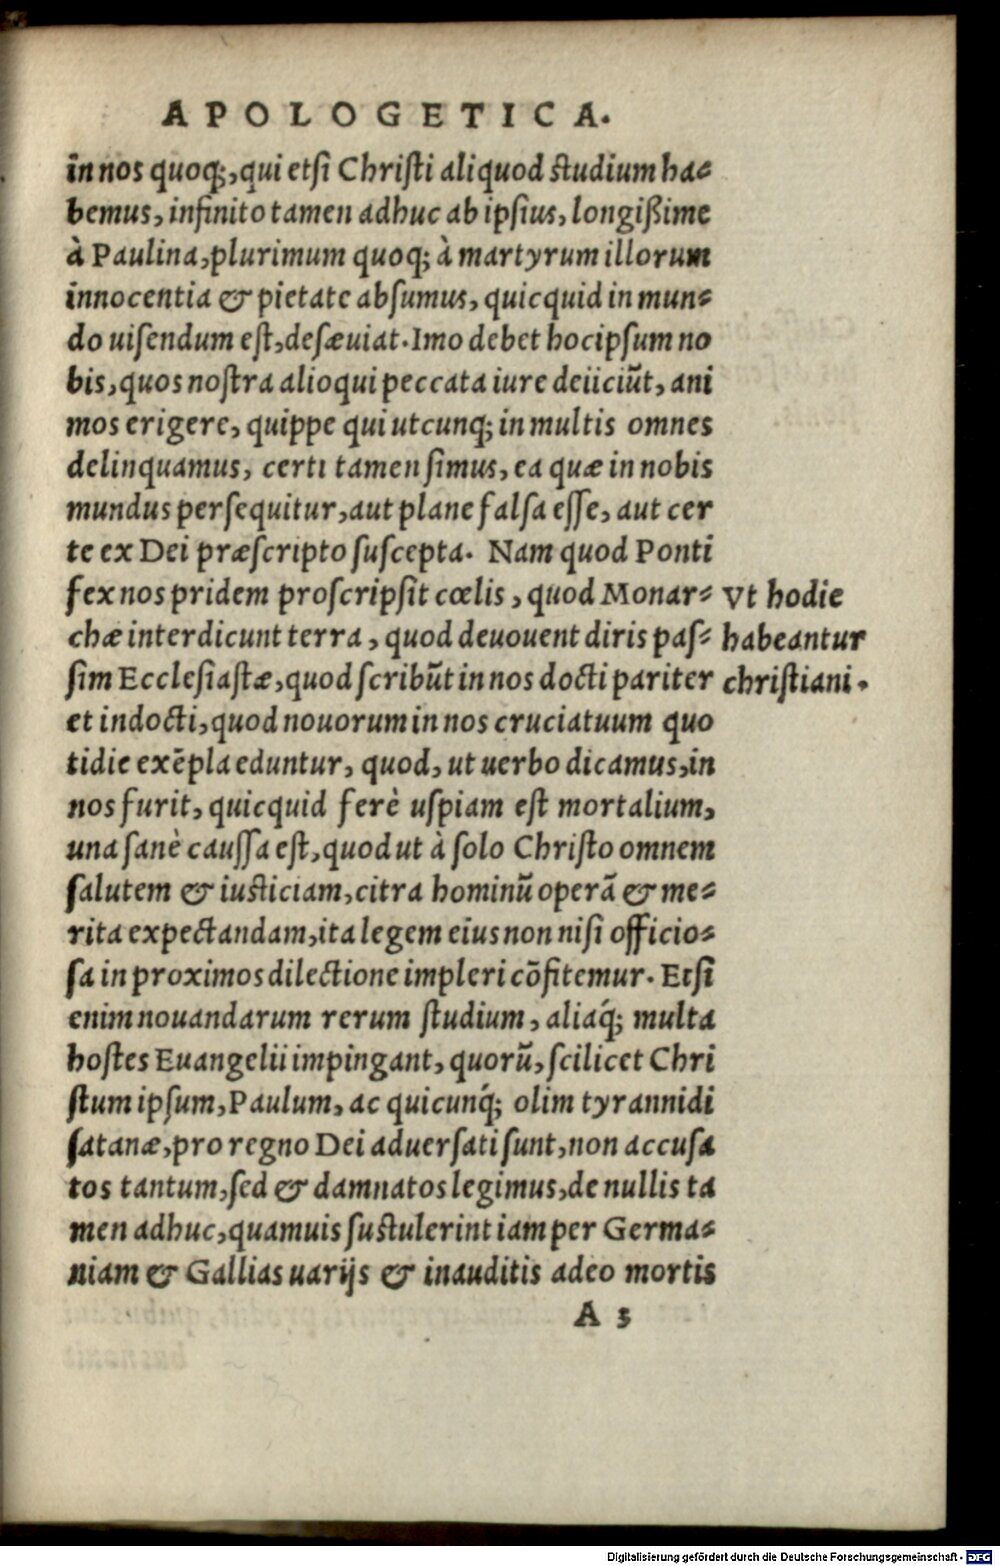 APOLOGETICA.
in nos quoq;, qui etsi Christi aliquod studium ha-
bemus, infinito tamen adhuc ab ipsius, longißime
à Paulina, plurimum quoq; à martyrum illorum
innocentia & pietate absumus, quicquid in mun-
do uisendum est, desæuiat. Imo debet hoc ipsum no
bis, quos nostra alioqui peccata iure deiiciũt, ani
mos erigere, quippe qui utcunq; in multis omnes
delinquamus, certi tamen simus, ea quæ in nobis
mundus persequitur, aut plane falsa esse, aut cer
te ex Dei præscripto suscepta. Nam quod Ponti
fex nos pridem proscripsit cœlis, quod Monar-
chæ interdicunt terra, quod deuouent diris pas-
sim Ecclesiastæ, quod scribũt in nos docti pariter
et indocti, quod nouorum in nos cruciatuum quo
tidie exẽpla eduntur, quod, ut uerbo dicamus, in
nos furit, quicquid ferè uspiam est mortalium,
una sanè caussa est, quod ut à solo Christo omnem
salutem & iusticiam, citra hominũ operã & me-
rita expectandam, ita legem eius non nisi officio-
sa in proximos dilectione impleri cõfitemur. Etsi
enim nouandarum rerum studium, aliaq́; multa
hostes Euangelii impingant, quorũ, scilicet Chri
stum ipsum, Paulum, ac quicunq́; olim tyrannidi
satanæ, pro regno Dei aduersati sunt, non accusa
tos tantum, sed & damnatos legimus, de nullis ta
men adhuc, quamuis sustulerint iam per Germa-
niam & Gallias uarijs & inauditis adeo mortis
A 3
Vt hodie
habeantur
christiani.
Digitalisierung gefördert durch die Deutsche Forschungsgemeinschaft - DFG